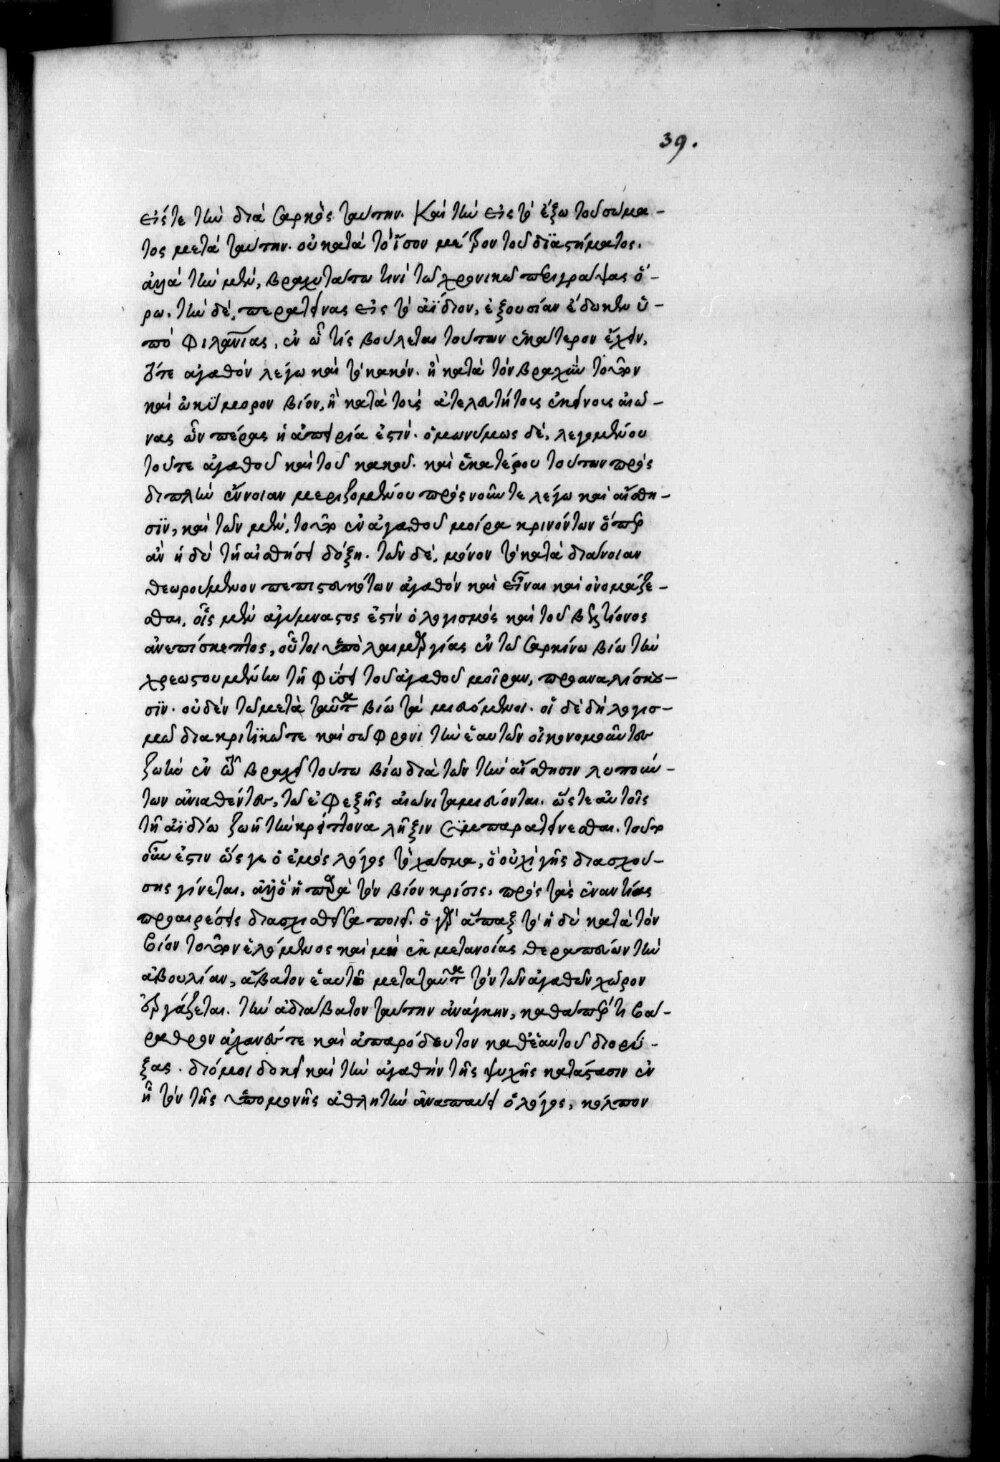 39.
εἴς τε τὴν διὰ σαρκὸς ταύτην. Καὶ τὴν εἰς τὸ ἔξω τοῦ σώμα-
τος μετὰ ταύτην. οὐ κατὰ τὸ ἴσον μέτρον τοῦ διαστήματος.
ἀλλὰ τὴν μὲν, βραχυτάτῳ τινὶ τῷ χρονικῷ περιγράψας ὅ-
ρῳ. τὴν δὲ, παρατείνας εἰς τὸ ἀΐδιον, ἐξουσίαν ἔδωκεν ὑ-
πὸ φιλανίας, ἐν ᾧ τίς βούλεται τούτων ἑκάτερον ἔχειν,
τότε ἀγαθὸν λέγω καὶ τὸ κακόν. ἢ κατὰ τὸν βραχὺν τοῦτον
καὶ ὠκύμορον βίον, ἢ κατὰ τοὺς ἀτελευτήτους ἐκείνους αἰῶ-
νας ὧν πέρας ἡ ἀπειρία ἐστίν. ὁμωνύμως δὲ, λεγομένου
τοῦτε ἀγαθοῦ καὶ τοῦ κακοῦ. καὶ ἑκατέρου τούτων πρὸς
διπλῆν ἔννοιαν μεριζομένου πρὸς νοῦν τε λέγω καὶ αἴσθη-
σιν, καὶ τῶν μὲν, τοῦτο ἐν ἀγαθοῦ μοίρα κρινόντων ὅπερ
ἂν ἡδὺ τῇ αἰσθήσει δόξῃ. τῶν δὲ, μόνον τὸ κατὰ διάνοιαν
θεωρούμενον πεπιστευκότων ἀγαθὸν καὶ εἶναι καὶ ὀνομάζε-
σθαι, οἷς μὲν ἀγύμναστος ἐστὶν ὁ λογισμὸς καὶ τοῦ βελτίονος
ἀνεπίσκεπτος, οὗτοι ὑπὸ λαιμαργίας ἐν τῷ σαρκίνῳ βίῳ τὴν
χρεωστουμένην τῇ φύσει τοῦ ἀγαθοῦ μοῖραν, προαναλίσκου-
σιν. οὐδὲν τῷ μετὰ ταῦτα βίῳ ταμιευόμενοι. οἱ δὲ δὴ λογισ-
μῷ διακριτικῷ τε καὶ σώφρονι τὴν ἑαυτῶν οἰκονομοῦντες
ζωὴν ἐν τῷ βραχεῖ τούτῳ βίῳ διὰ τῶν τὴν αἴσθησιν λυπούν-
των ἀνιαθέντες, τῷ ἐφεξῆς αἰῶνι ταμιεύονται. ὥστε αὐτοῖς
τῇ ἀϊδίῳ ζωῇ τὴν κρείττονα λῆξιν συμπαρατείνεσθαι. τοῦτο
οὖν ἐστιν ὥς γε ὁ ἐμὸς λόγος τὸ χάσμα, ὃ οὐχὶ γῆς διασχού-
σης γίνεται, ἀλλ' ὃ ἡ παρὰ τὸν βίον κρίσις, πρὸς τὰς ἐναντίας
προαιρέσεις διασχισθεῖσα ποιεῖ. ὁ γὰρ ἅπαξ τὸ ἡδὺ κατὰ τὸν
βίον τοῦτον ἑλόμενος καὶ μὴ ἐκ μετανοίας θεραπεύων τὴν
ἀβουλίαν, ἄβατον ἑαυτῷ μετα ταῦτα τὸν τῶν ἀγαθῶν χῶρον
ἐργάζεται. τὴν ἀδιάβατον ταύτην ἀνάγκην, καθάπερ τι βά-
ραθρον ἀχανές τε καὶ ἀπαρόδευτον καθ' ἑαυτοῦ διορύ-
ξας. διό μοι δοκεῖ καὶ τὴν ἀγαθὴν τῆς ψυχῆς κατάστασιν ἐν
ᾗ τὸν τῆς ὑπομονῆς ἀθλητὴν ἀναπαύει ὁ λόγος, κόλπον